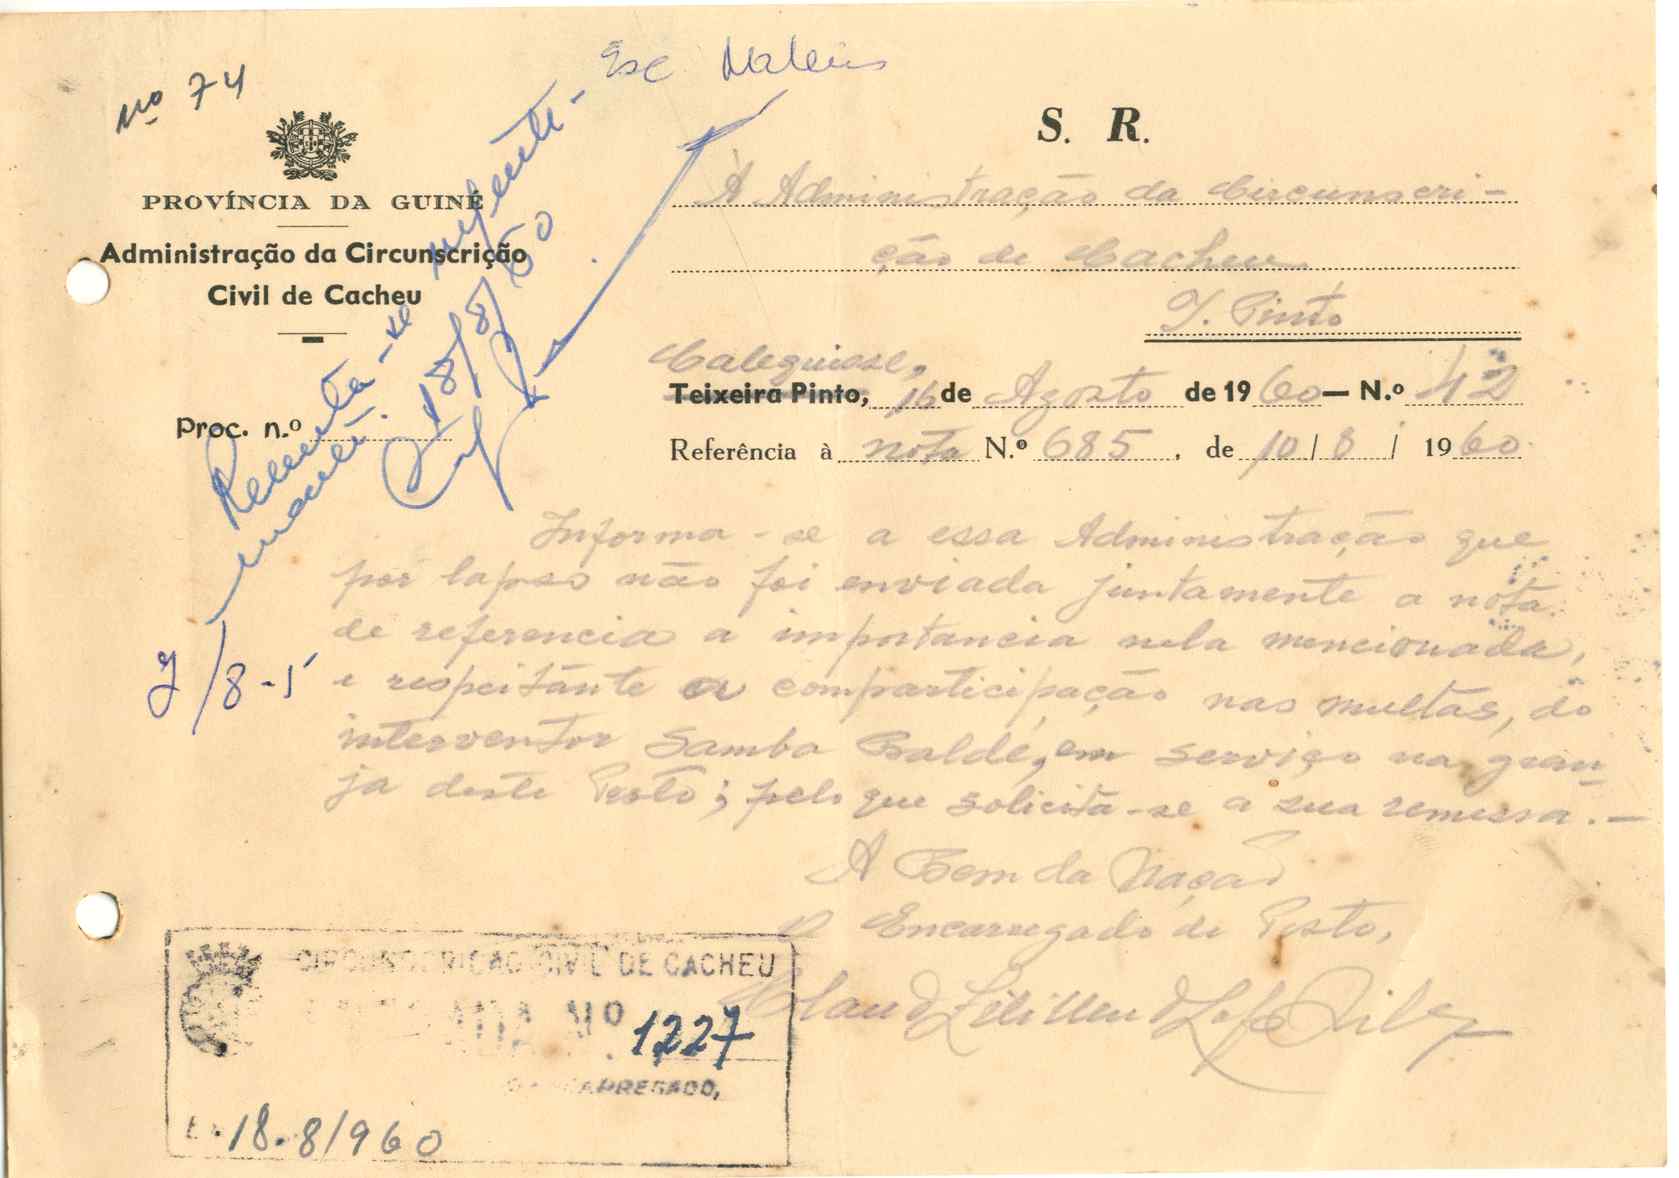 nº 74
Esc Mateus
PROVÍNCIA DA GUINÉ
Administração da Circunscrição
Civil de Cacheu
Proc. n.º
Remeta-se urgente-
18/8/60
J/8-5
S. R.
À Administração da Circunscri-
ção de Cacheu
T. Pinto
Calequisse,
Teixeira Pinto, 16 de Agosto de 1960 — N.º 42
Referência à nota N.º 685, de 10/8/1960
Informa-se a essa Administração que
por lapso não foi enviada juntamente a nota
de referencia a importancia nela mencionada,
e respeitante a comparticipação nas multas, do
interventor Samba Baldé, em serviço na gran-
ja deste Posto; pelo que solicita-se a sua remessa.—
A Bem da Nação
O Encarregado de Posto,
CIRCUNSCRIÇÃO CIVIL DE CACHEU
ENTRADA Nº 1227
O ENCARREGADO,
Em 18.8/960